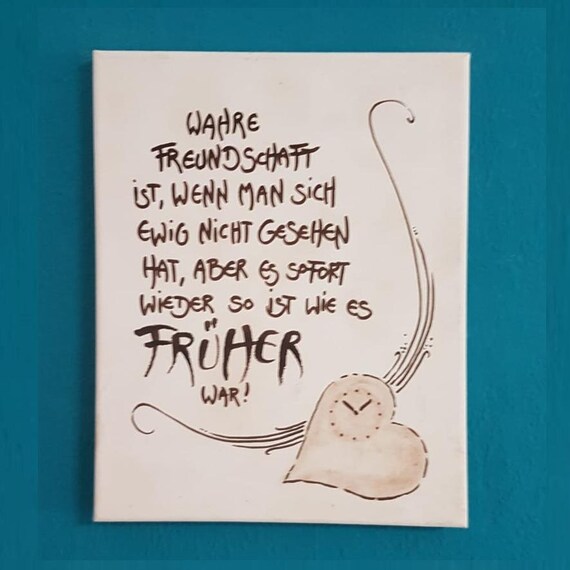 WAHRE
FREUNDSCHAFT
iST, WENN MAN SiCH
EWiG NiCHT GESEHEN
HAT, ABER ES SOFORT
WiEDER SO iST WiE ES
FRÜHER
WAR!